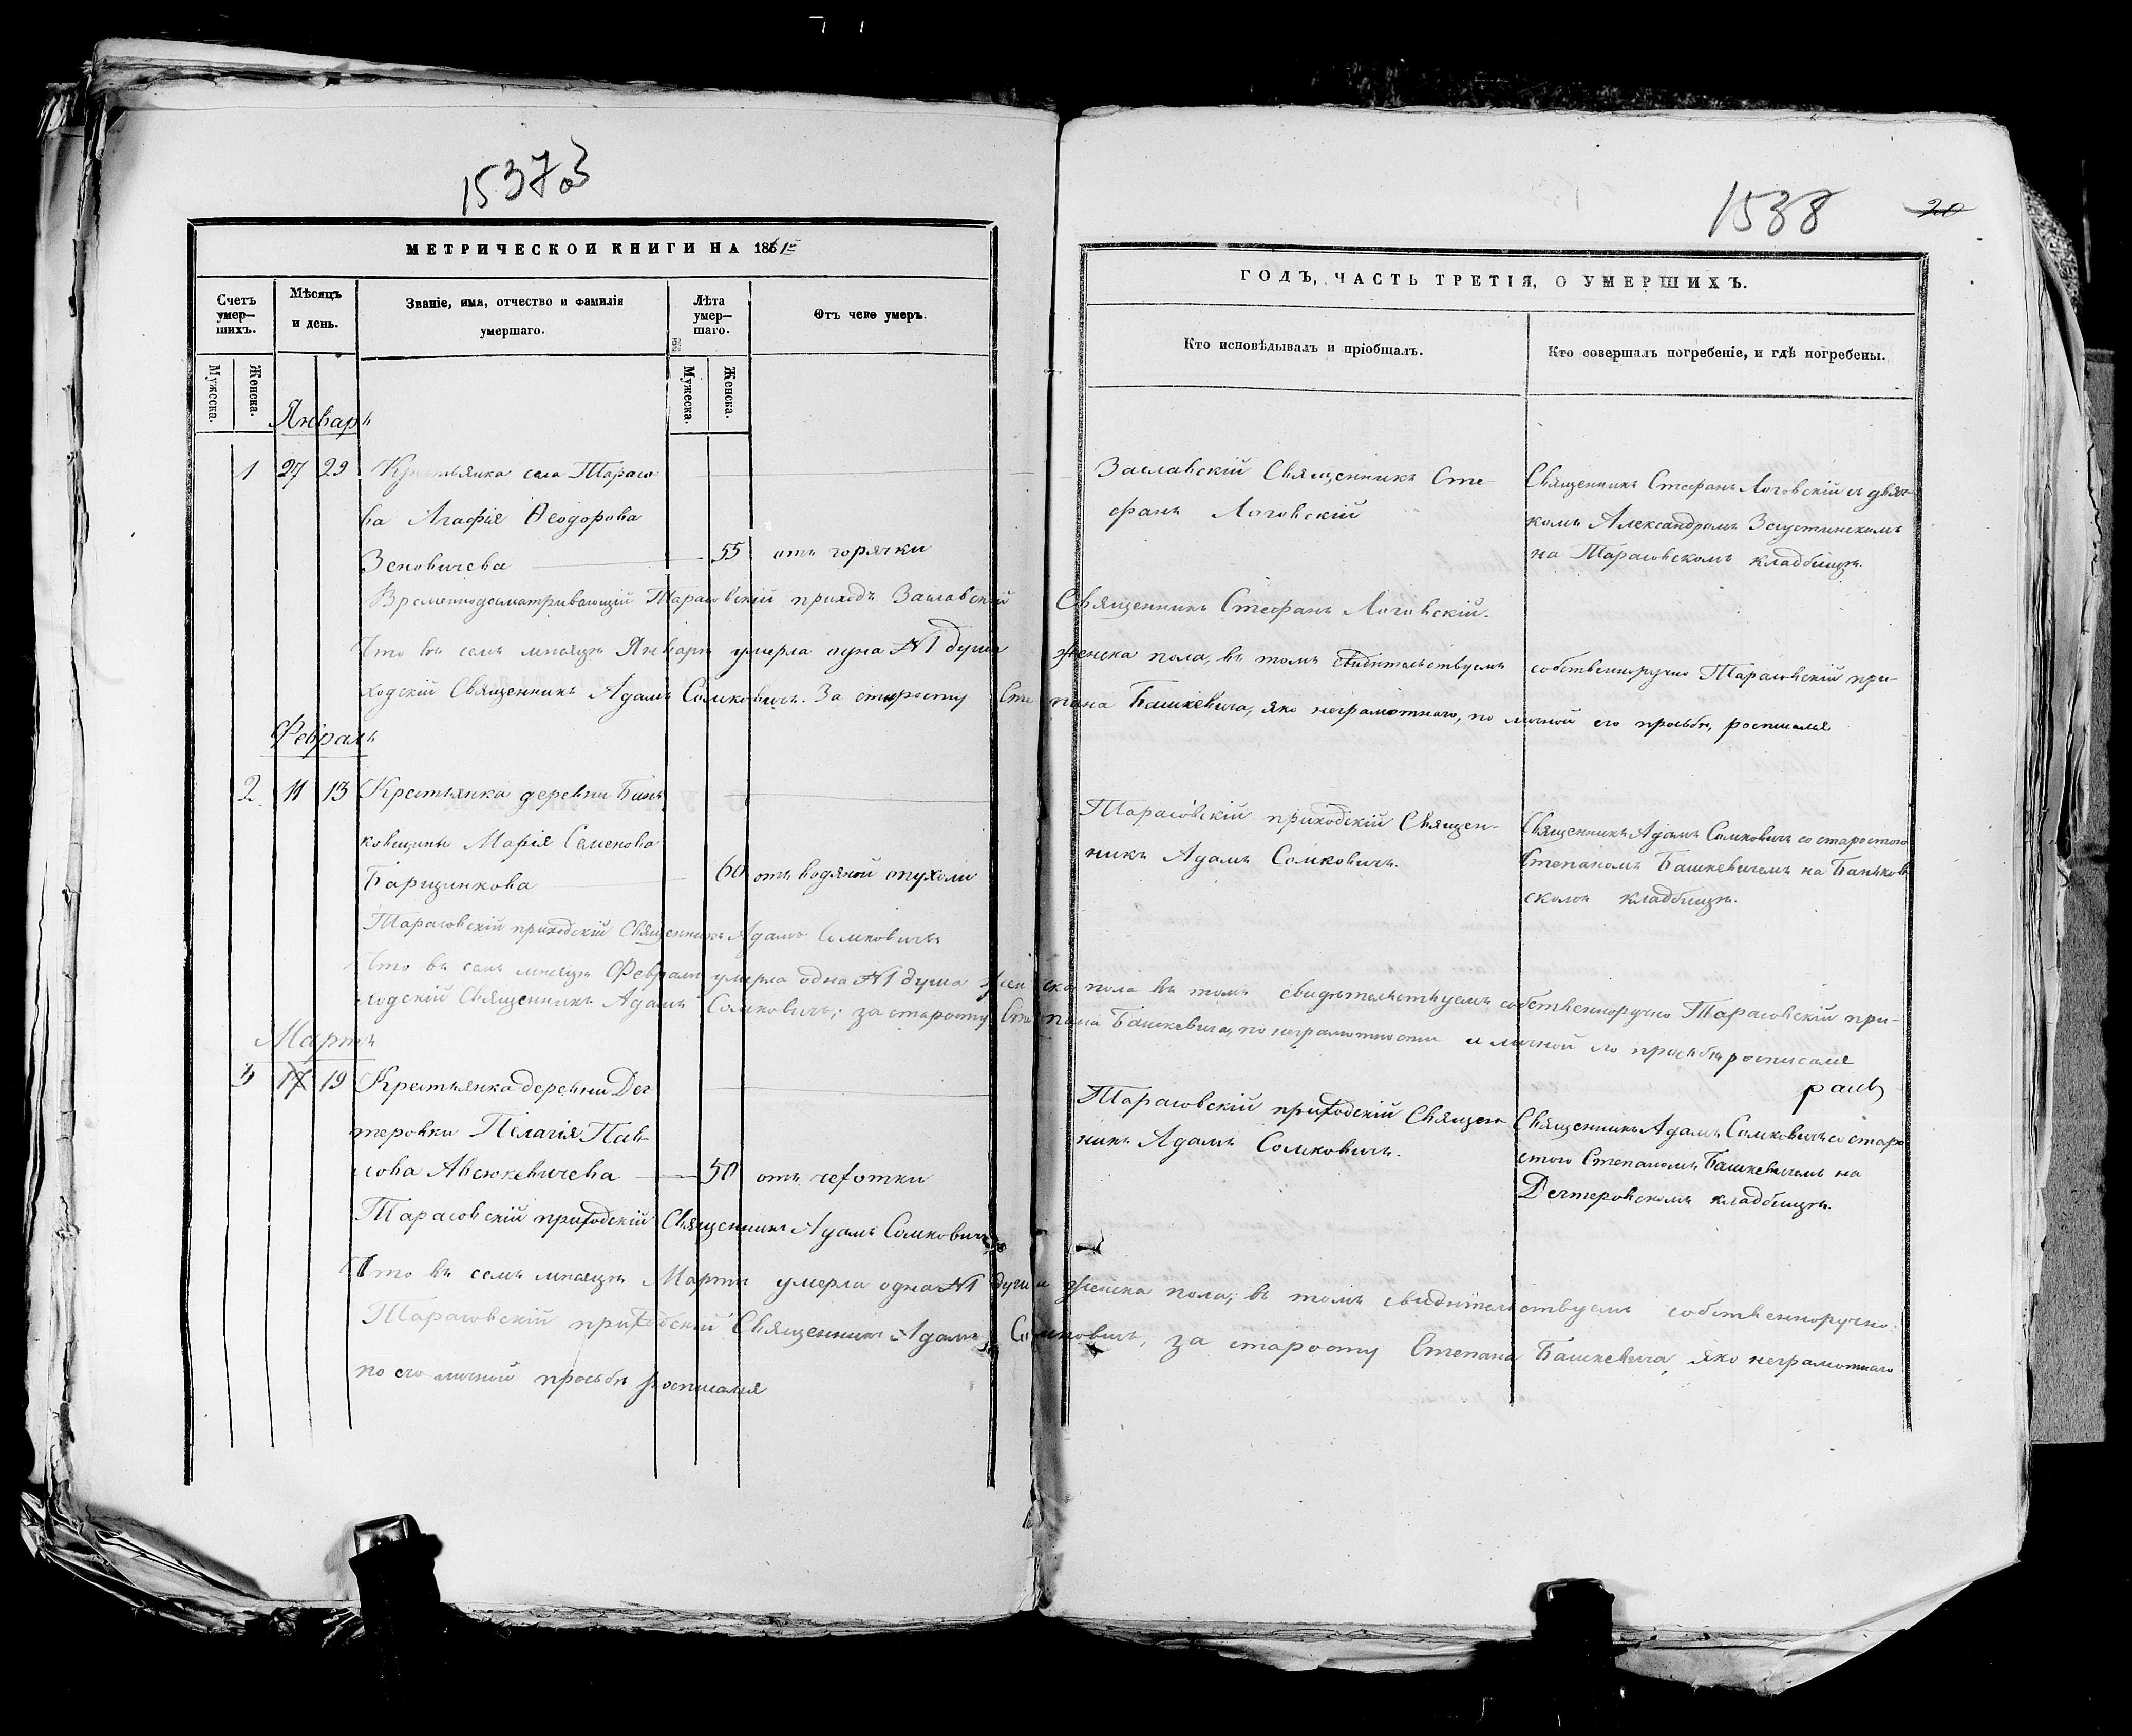 1537
МЕТРИЧЕСКОЙ КНИГИ НА 1861
Счетъ умер—шихъ.
Мѣсяцъ и день.
Званіе, имя, отчество и фамилія умершаго.
Лѣта умер—шаго.
Отъ чего умеръ.
Мужеска.
Женска.
Мужеска.
Женска.
Январь
1 27 29 Крестьянка села Тарасо
ва Агафія Ѳеодорова
Зеновичева 55 отъ горячки
Временнодосматривающій Тарасовскій приходъ Заславскій
Что въ семъ мѣсяцѣ Январѣ умерла одна №1 душа
ходскій Священникъ Адамъ Сомковичъ. За старосту Сте
Февраль
2 11 13 Крестьянка деревни Бань
ковщины Марія Семенова
Барщикова 60 отъ водяной опухоли
Тарасовскій приходскій Священникъ Адамъ Сомковичъ
Что въ семъ мѣсяцѣ Февралѣ умерла одна №1 душа жен
ходскій Священникъ Адамъ Сомковичъ; за старосту Сте
Мартъ
3 17 19 Крестьянка деревни Дег
теровки Пелагія Пав
лова Авсюкевичева 50 отъ чехотки
Тарасовскій приходскій Священникъ Адамъ Сомковичъ
Что въ семъ мѣсяцѣ Мартѣ умерла одна №1 душа
Тарасовскій приходскій Священникъ Адамъ Со
по его личной просьбѣ росписался
1538
20
ГОДЪ, ЧАСТЬ ТРЕТІЯ, О УМЕРШИХЪ.
Кто исповѣдывалъ и пріобщалъ.
Кто совершалъ погребеніе, и гдѣ погребены.
Заславскій Священникъ Сте-
фанъ Логовскій
Священникъ Стефанъ Логовскій съ дьяч-
комъ Александромъ
на Тарасовскомъ кладбищѣ.
Священникъ Стефанъ Логовскій.
женска пола, въ томъ свидѣтельствуемъ собственноручно Тарасовскій при-
пана Башкевича, яко неграмотнаго, по личной его просьбѣ, росписался
Тарасовскій приходскій Священ-
никъ Адамъ Сомковичъ.
Священникъ Адамъ Сомковичъ со старостою
Степаномъ Башкевичемъ на Баньков
скомъ кладбищѣ.
ска пола въ томъ свидѣтельствуемъ собственноручно Тарасовскій при-
пана Башкевича, по неграмотности и личной его просьбѣ росписался
Тарасовскій приходскій Священ
никъ Адамъ Сомковичъ.
Священникъ Адамъ Сомковичъ со старо
стою Степаномъ Башкевичемъ на
Дегтеровскомъ кладбищѣ.
женска пола; въ томъ свидѣтельствуемъ собственноручно:
мковичъ, за старосту Степана Башкевича, яко неграмотнаго